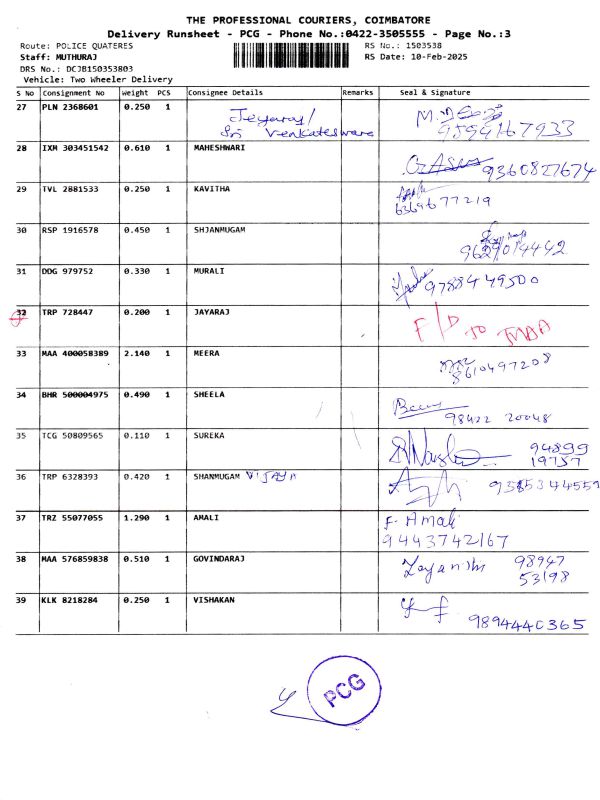 THE PROFESSIONAL COURIERS, COIMBATORE
Delivery Runsheet - PCG - Phone No.:0422-3505555 - Page No.:3
Route: POLICE QUATERES RS No.: 1503538
Staff: MUTHURAJ RS Date: 10-Feb-2025
DRS No.: DCJB150353803
Vehicle: Two Wheeler Delivery
S No Consignment No Weight PCS Consignee Details Remarks Seal & Signature
27 PLN 2368601 0.250 1 Jeyaraj/
Sri Venkateswara
28 IXM 303451542 0.610 1 MAHESHWARI 9360827674
29 TVL 2881533 0.250 1 KAVITHA 6369677219
30 RSP 1916578 0.450 1 SHJANMUGAM 9629014442
31 DDG 979752 0.330 1 MURALI 9788449500
32 TRP 728447 0.200 1 JAYARAJ F/D TO
33 MAA 400058389 2.140 1 MEERA 8610497208
34 BHR 500004975 0.490 1 SHEELA 98422 20048
35 TCG 50809565 0.110 1 SUREKA 94899
19757
36 TRP 6328393 0.420 1 SHANMUGAM VIJAYA 9385344559
37 TRZ 55077055 1.290 1 AMALI F. Amali
9443742167
38 MAA 576859838 0.510 1 GOVINDARAJ 98947
53198
39 KLK 8218284 0.250 1 VISHAKAN 9894440365
PCG